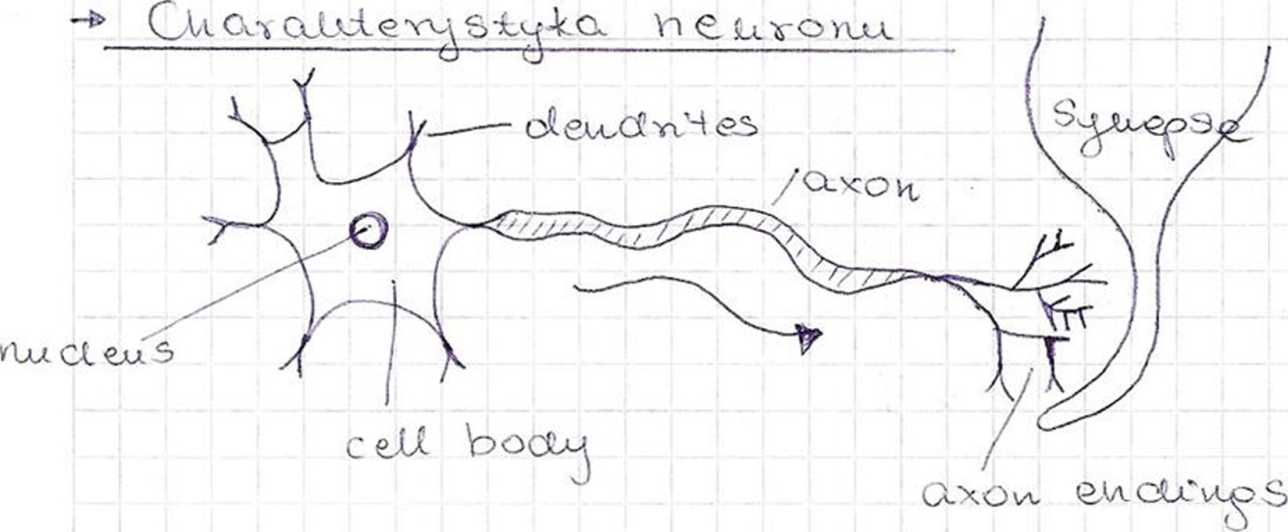 → Charakterystyka neuronu
dendrites
Synapse
axon
nucleus
cell body
axon endings